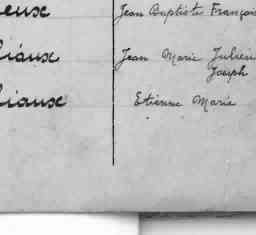 eux Jean Baptiste François
iaux Jean Marie Julien
Joseph
iaux Etienne Marie